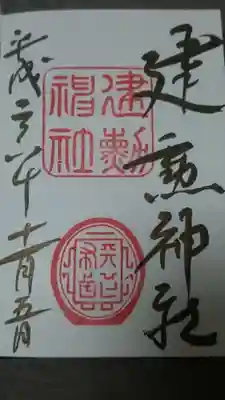 建勲神社
建勲神社
平成二六年十一月五日